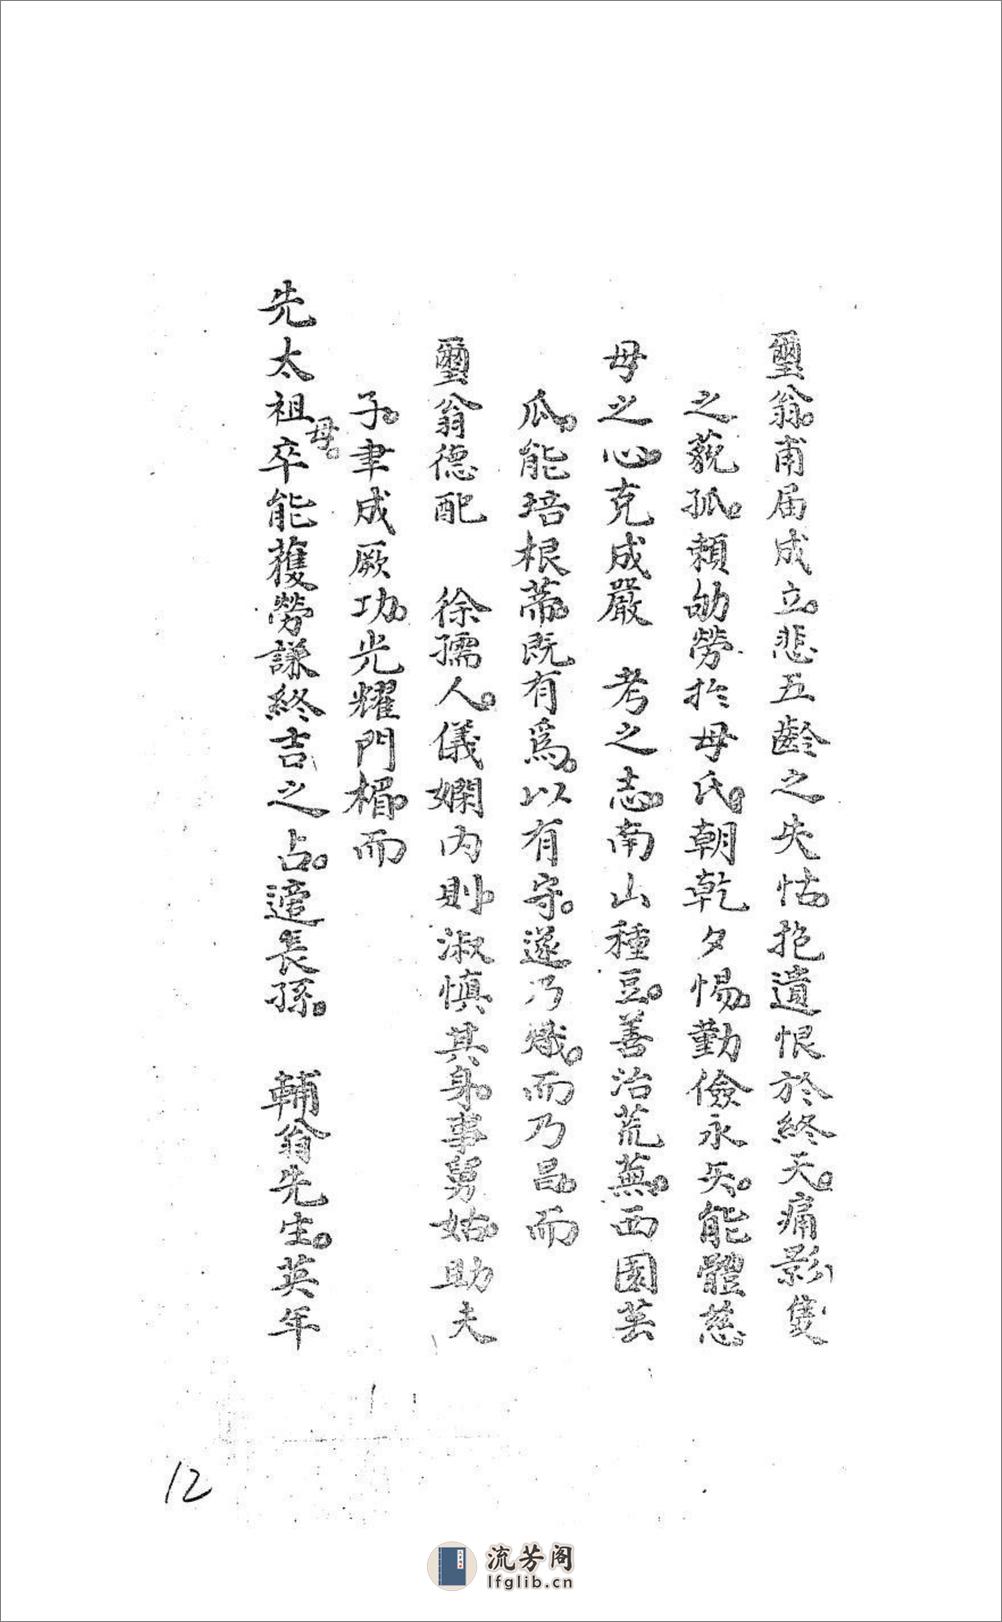 璽翁。甫届成立。悲五齡之失怙。抱遺恨於終天。痛影隻
之藐孤。賴劬勞於母氏。朝乾夕惕。勤儉永矢。能體慈
母之心。克成嚴　考之志。南山種豆。善治荒蕪。西園芸
瓜。能培根蒂。既有爲。以有守。遂乃熾。而乃昌。而
璽翁德配　徐孺人。儀嫻内則。淑慎其身。事舅姑。助夫
子。聿成厥功。光耀門楣。而
先太祖母。卒能獲勞謙終吉之占。適長孫。　輔翁先生。英年
12
流芳阁
lfglib.cn